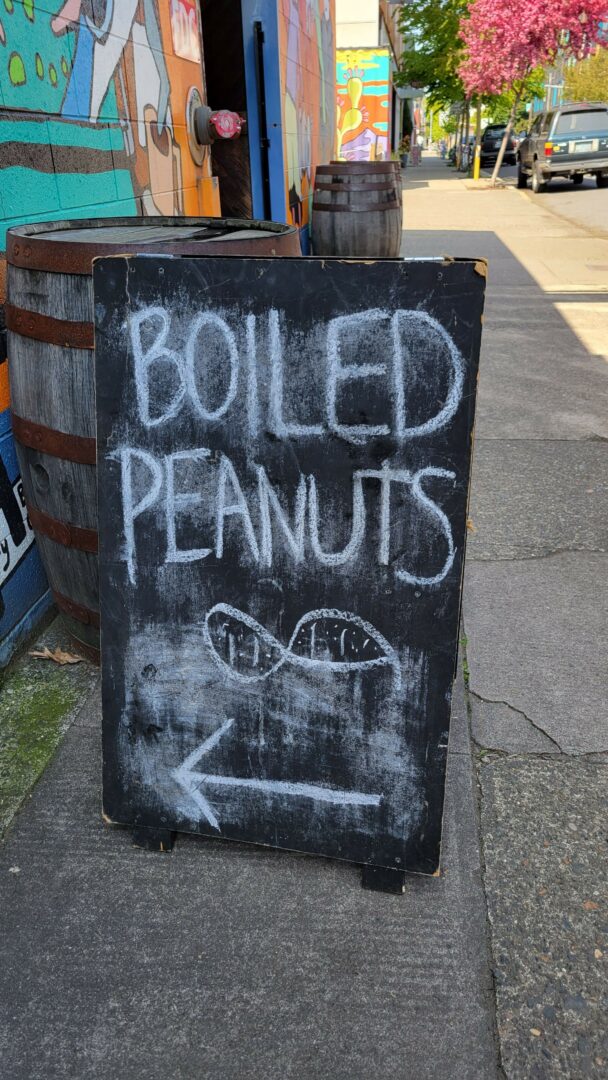 BOILED
PEANUTS